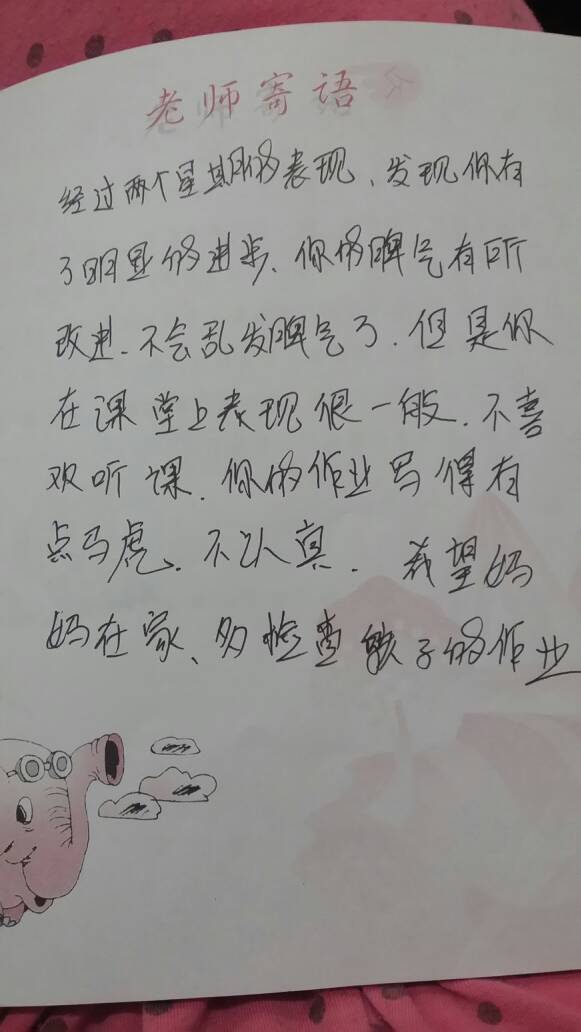 老师寄语
经过两个星期的表现、发现你有
了明显的进步、你的脾气有所
改进.不会乱发脾气了.但是你
在课堂上表现很一般.不喜
欢听课.你的作业写得有
点马虎.不认真.希望妈
妈在家、多检查孩子的作业